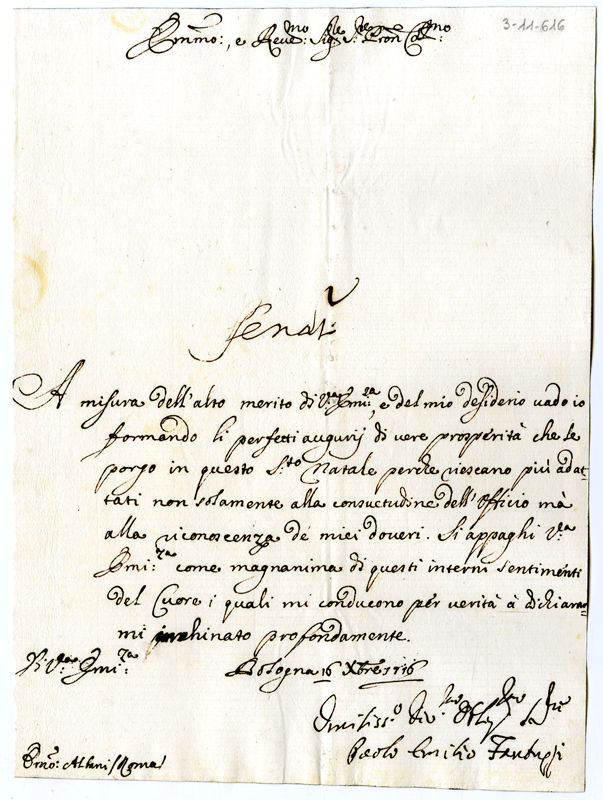 3-11-616
Emmo:, e Reve:mo Sigre Sre Pron Colmo:
Senatr:
A misura dell'alto merito di V:ra Emi:za, e del mio desiderio vado io
formando li perfetti augurij di vere prosperità che le
porgo in questo S:to Natale perche riescano più adat-
tati non solamente alla consuetudine dell'Officio mà
alla riconoscenza de miei doveri. Si appaghi V:ra
Emi:za come magnanima di questi interni sentimenti
del Cuore i quali mi conducono per verità à dichiarar-
mi inchinato profondamente.
Di V:ra Emi:za Bologna 16 Xbre 1716
Umiliss:o Div:mo Obl:mo Sre
Paolo Emilio Fantuzzi
Emo: Albani / Roma /